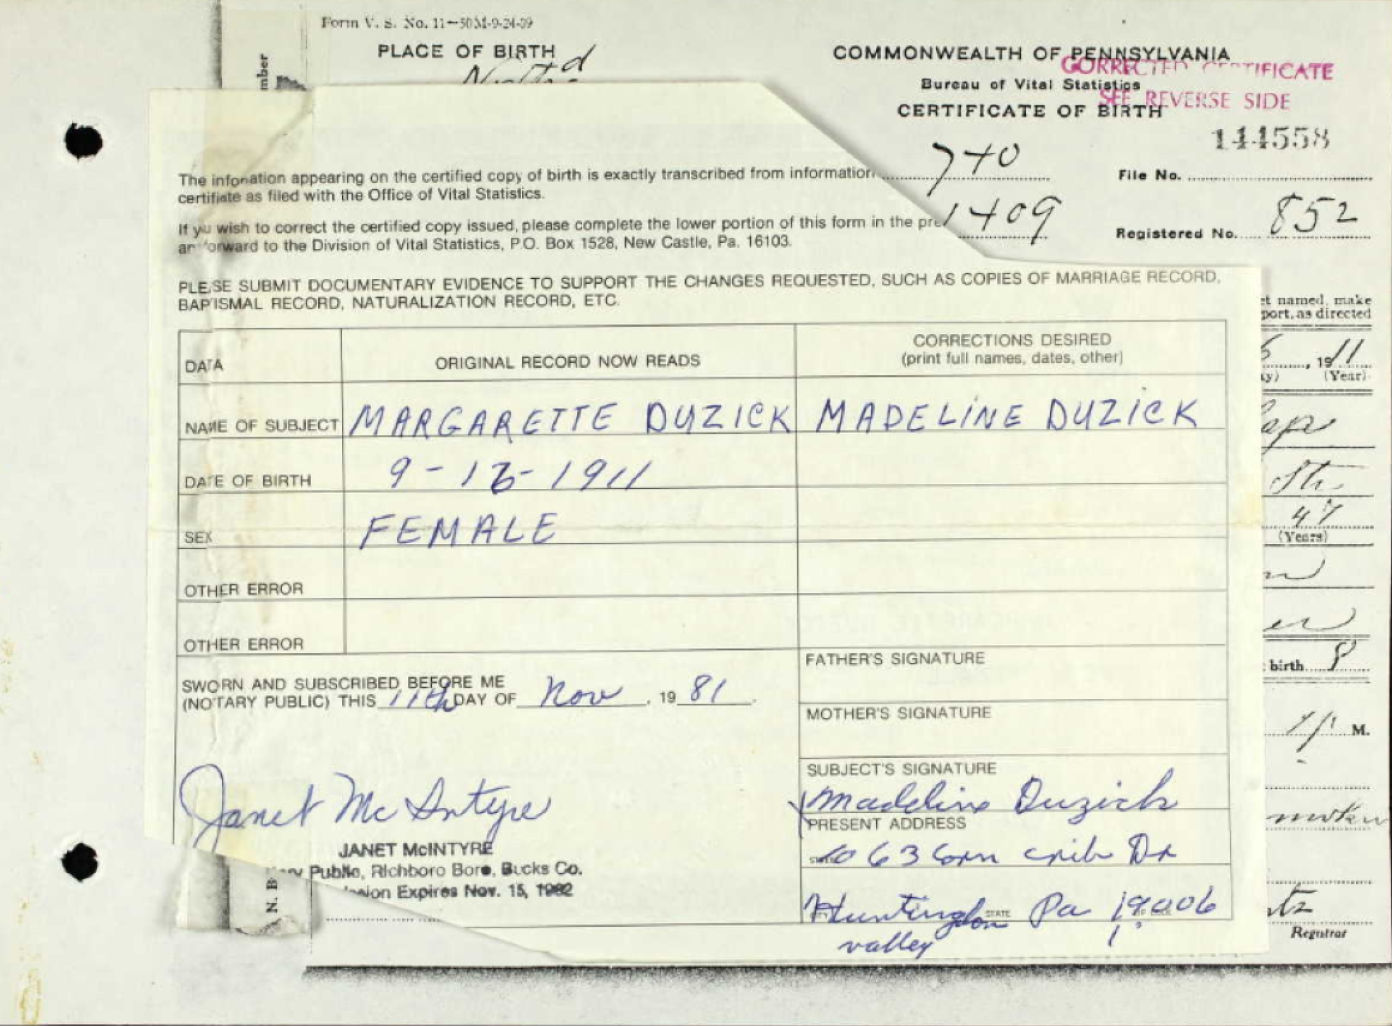 Form V. S. No. 11—50M-9-24-09
PLACE OF BIRTH
COMMONWEALTH OF PENNSYLVANIA
CORRECTED CERTIFICATE
Bureau of Vital Statistics
SEE REVERSE SIDE
CERTIFICATE OF BIRTH
144558
740
File No.
1409
Registered No. 852
The infonation appearing on the certified copy of birth is exactly transcribed from information
certifiate as filed with the Office of Vital Statistics.
If yu wish to correct the certified copy issued, please complete the lower portion of this form in the pre
an forward to the Division of Vital Statistics, P.O. Box 1528, New Castle, Pa. 16103.
PLEASE SUBMIT DOCUMENTARY EVIDENCE TO SUPPORT THE CHANGES REQUESTED, SUCH AS COPIES OF MARRIAGE RECORD,
BAPTISMAL RECORD, NATURALIZATION RECORD, ETC.
t named, make
port, as directed
DATA ORIGINAL RECORD NOW READS CORRECTIONS DESIRED
(print full names, dates, other)
, 1911
(Year)
NAME OF SUBJECT MARGARETTE DUZICK MADELINE DUZICK
DATE OF BIRTH 9-13-1911
Str
SEX FEMALE
47
(Years)
OTHER ERROR
OTHER ERROR
birth 8
FATHER'S SIGNATURE
SWORN AND SUBSCRIBED BEFORE ME
(NOTARY PUBLIC) THIS 11th DAY OF Nov, 19 81.
MOTHER'S SIGNATURE
M.
SUBJECT'S SIGNATURE
Madeline Duzick
Janet McIntyre
PRESENT ADDRESS
1063 Corn crib Dr
JANET McINTYRE
Public, Richboro Boro, Bucks Co.
ion Expires Nov. 15, 1982
Huntingdon Pa 19006
STATE
valley
tz
Registrar
N. B